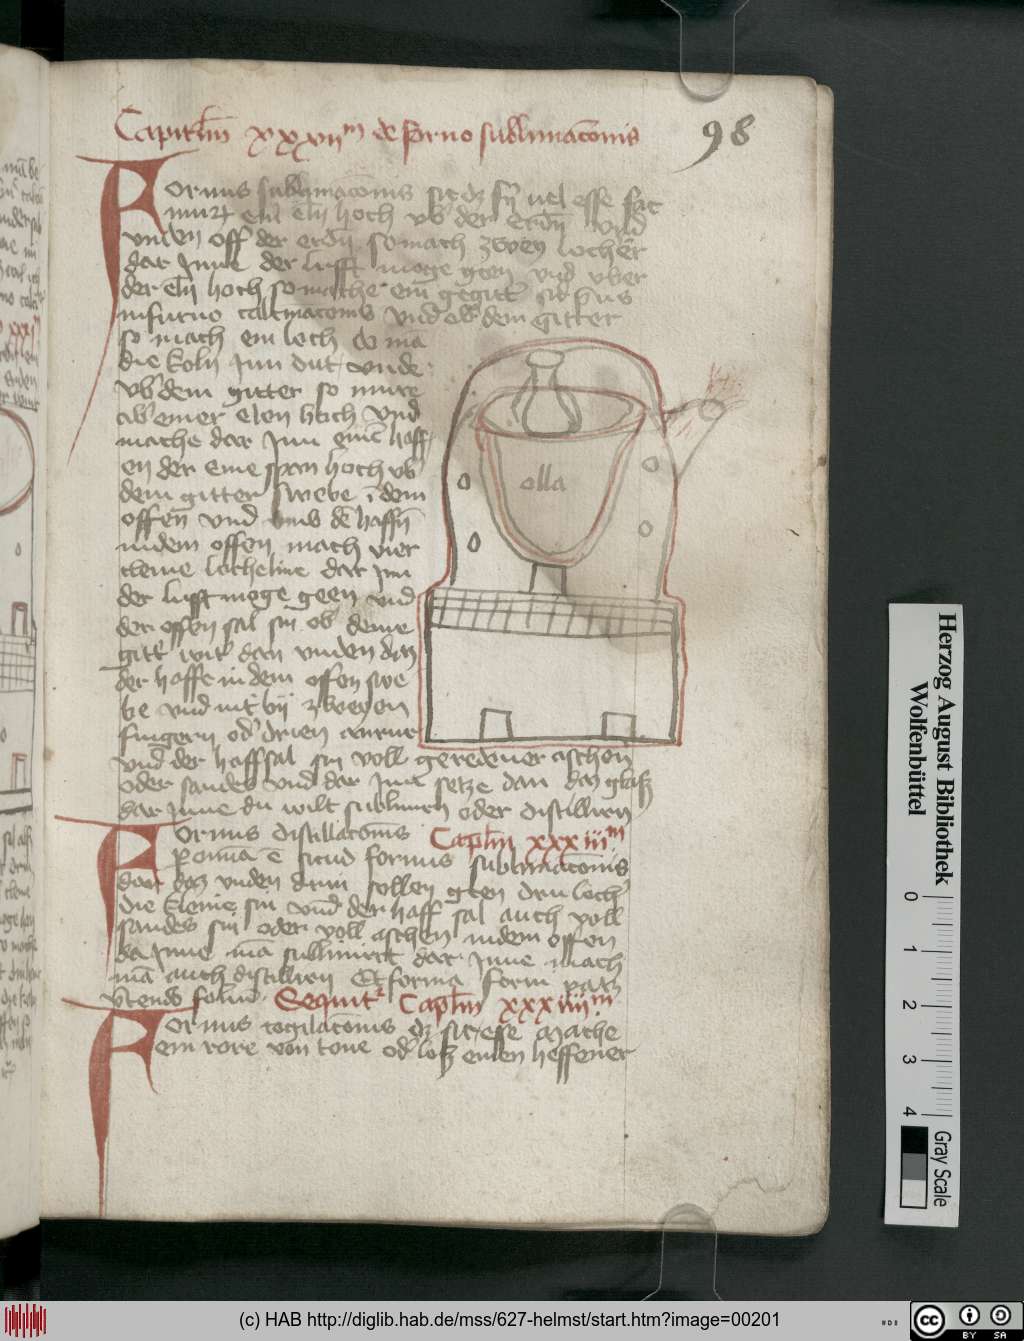 Capitłm xxxvii^m de forno sublimacōnis
98
Fornus sublimacōnis sic dꝫ sꝫ uel esse fac
murꝫ ein eln hoch vb der erdñ vnd
vnden off der erdñ so mach zwey locher
dar Inne der lufft moge geen vnd vber
der eln hoch so mache ein gegitt
in furno calcinacōnis vnd ob dem gitter
so mach ein loch do mā
die koln Inn dut vnde
vb dem gitter so mure
ab einer elen hoch vnd
mache dar Inn eine haff
en der eine span hoch vb
dem gitter swebe ī dem
offen vnd vmb dē haffñ
in dem offen mach vier
cleine locheline dar Inn
der lufft moge geen vnd
der offen sal sin ob deme
gitt wit dan vnden daz
der haffe in dem offen swe
be vnd nit bij zweyen
fingern od drien
vnd der haff sal sin voll geredener aschen
oder sandes vnd dar Inn setze dan daz glaß
dar Inne du wilt sublimern oder distillirn
olla
Fornus distillacōnis Capłm xxxiii^m
ē sicud fornus sublimacōnis
dan daz vnden drin sollen geen dru loch
die kleine sin vnd der haff sal auch voll
sandes sin oder voll aschen in dem offen
da Inne mā sublimert dar Inne mach
mā auch distillirn Et forma
Sequit Capłm xxxiiii^m
Fornus cogilacōnis dꝫ sic esse Mache
ein rore von tone od
Herzog August Bibliothek
Wolfenbüttel
0 1 2 3 4
Gray Scale
(c) HAB http://diglib.hab.de/mss/627-helmst/start.htm?image=00201
cc BY SA